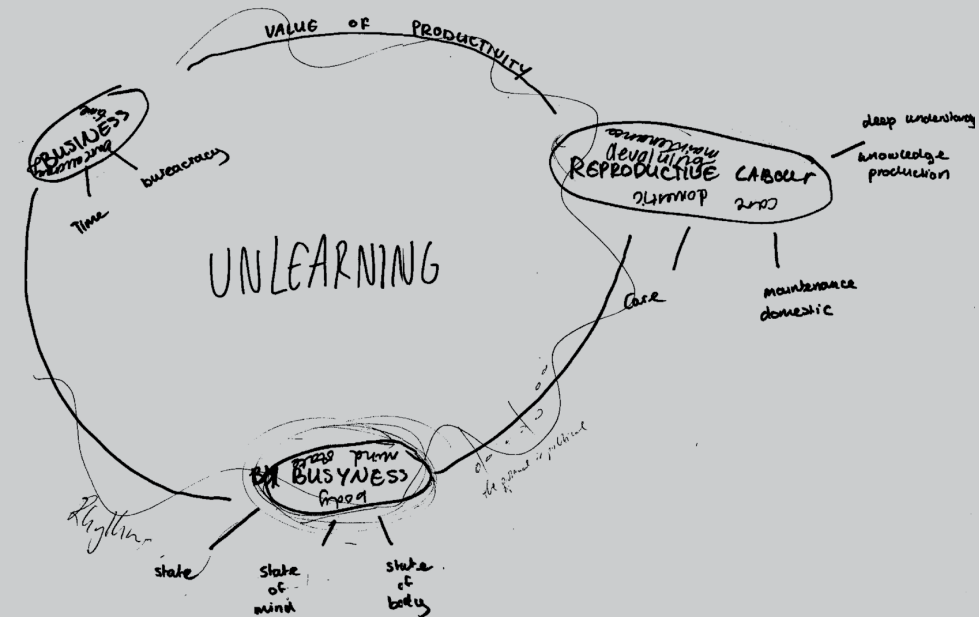 VALUE OF PRODUCTIVITY
time
BUSINESS
bureaucracy
bureacracy
Time
maintenance
devaluing
REPRODUCTIVE LABOUR
domestic care
deep understanding
knowledge
production
care
maintenance
domestic
UNLEARNING
mind
state
BU BUSYNESS
body
the personal is political
Rhythm
state
state
of
mind
state
of
body